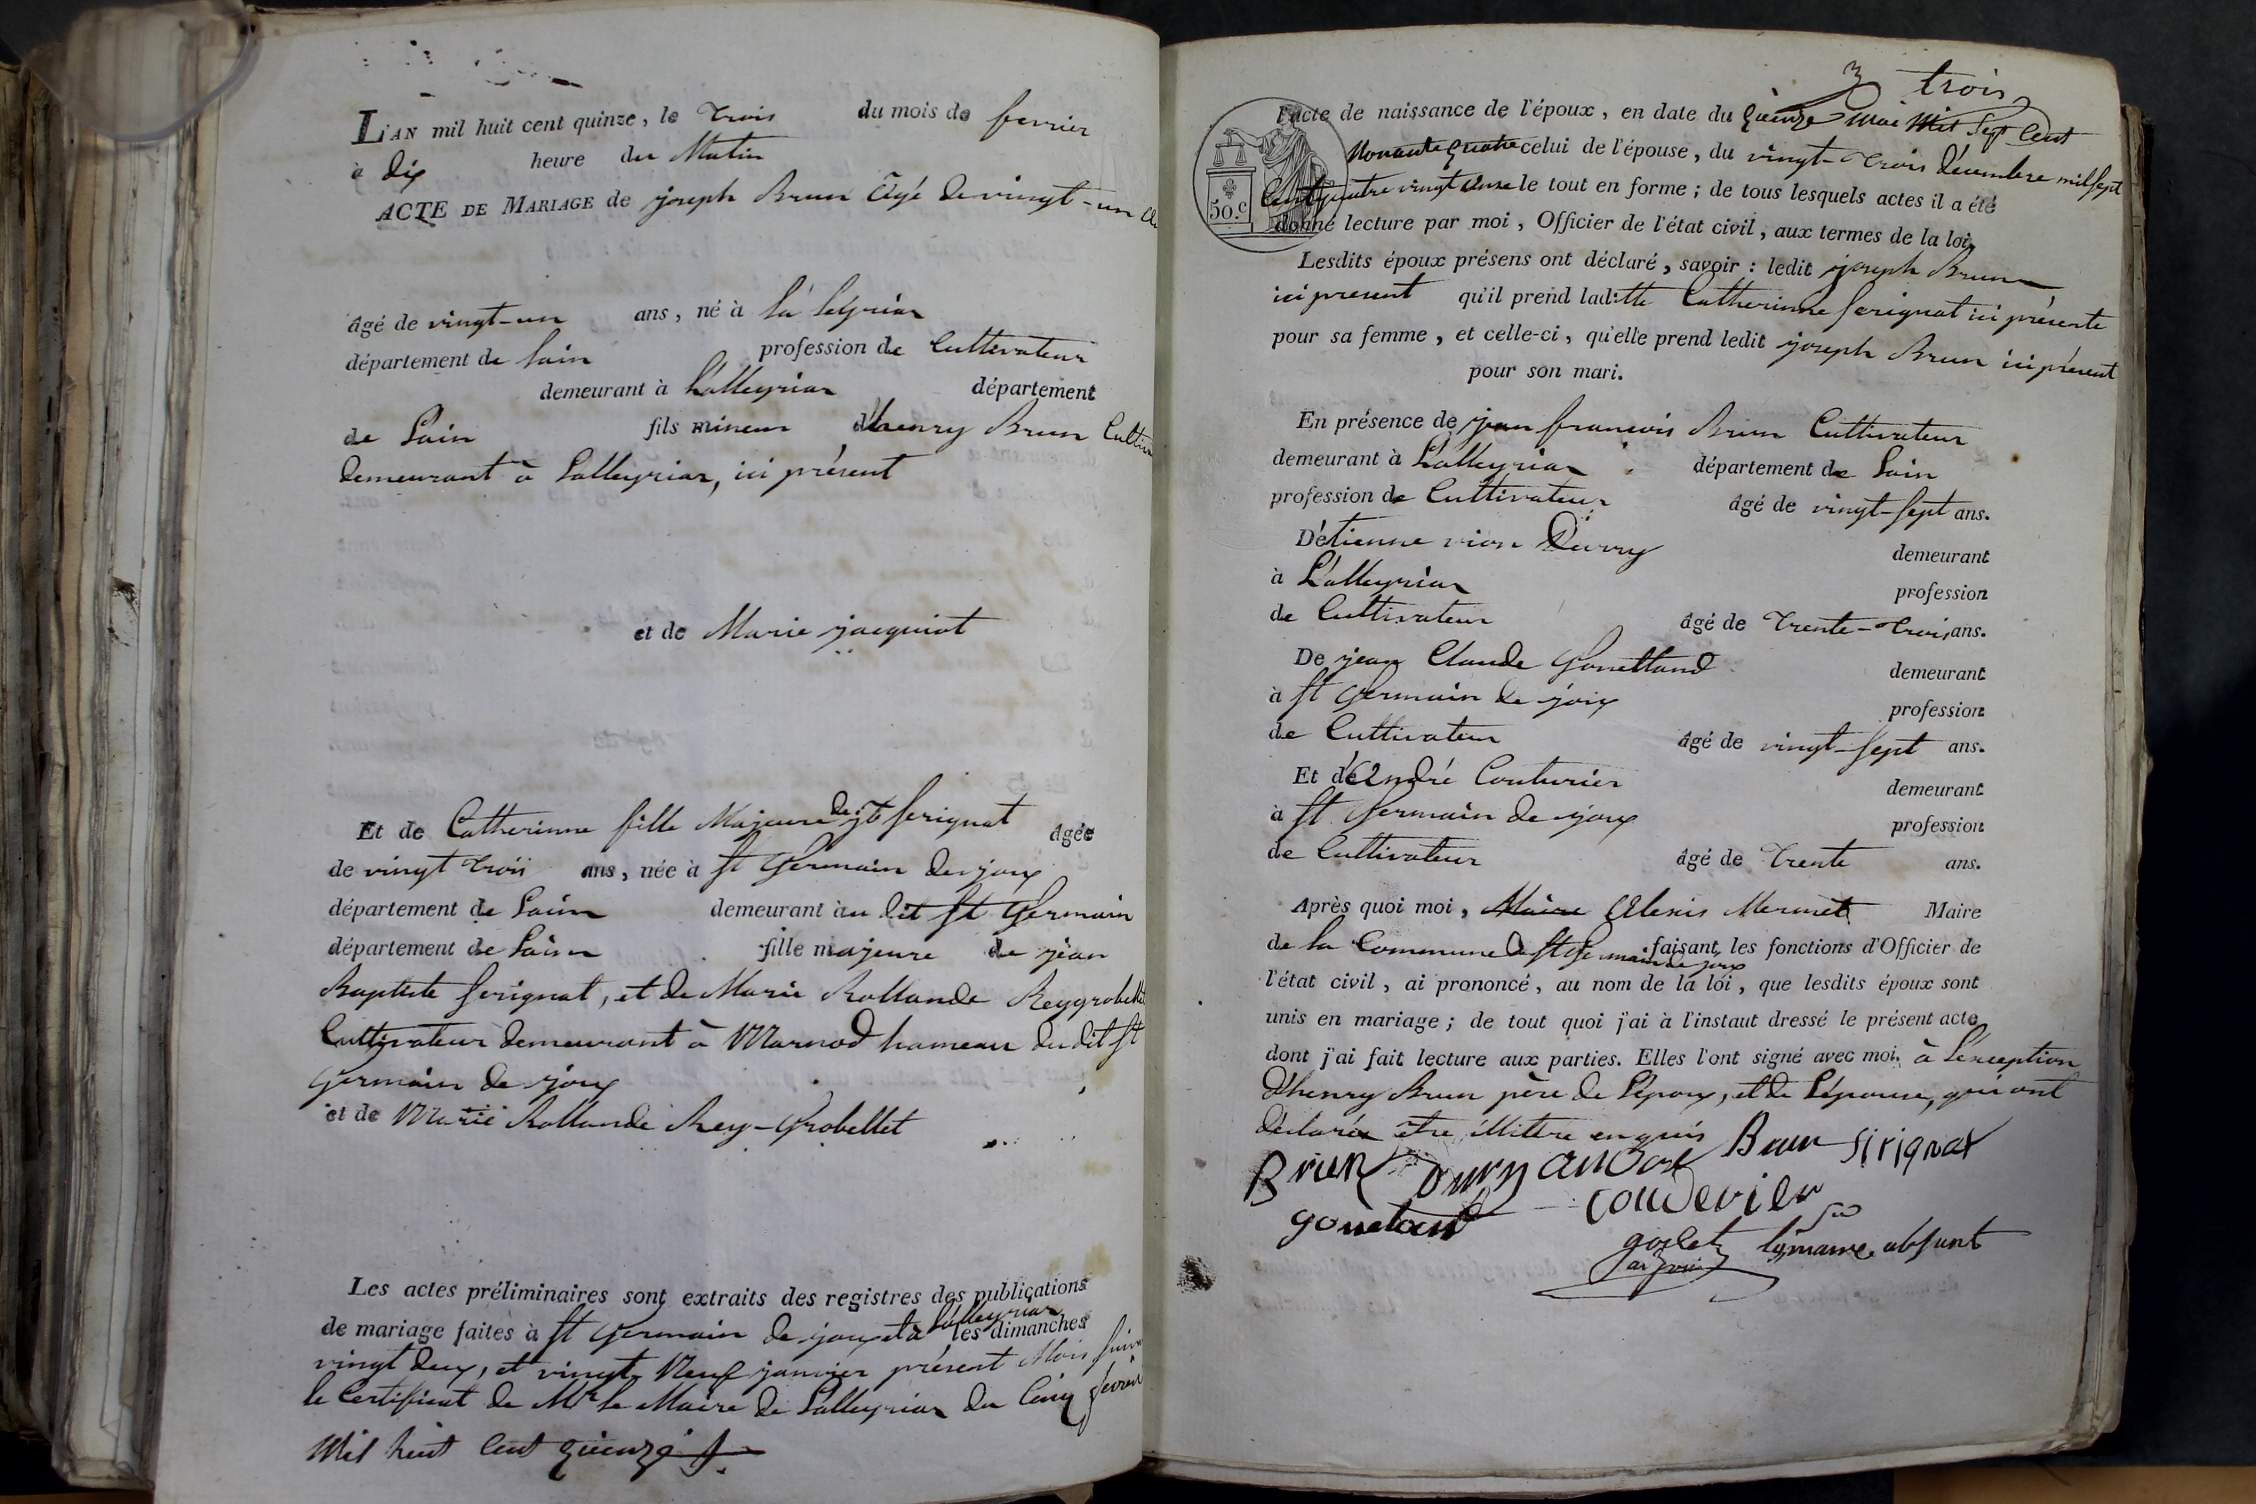 L'AN mil huit cent quinze, le trois du mois de fevrier
à dix heure du Matin
ACTE DE MARIAGE de joseph Brun âgé de vingt-un
âgé de vingt-un ans, né à la leyriar
département de lain profession de Cultivateur
demeurant à Lalleyriar département
de Lain fils mineur d'henry Brun
demeurant à Lalleyriar, ici présent
et de Marie jacquiot
Et de Catherinne fille Majeure de jB serignat âgée
de vingt trois ans, née à st Germain de joux
département de Lain demeurant au dit st Germain
département de Lain fille majeure de jean
Baptiste serignat, et de Marie Rollande Reygrobellet
Cultivateur demeurant à Marnod hameau dudit st
Germain de joux
et de Marie Rollande Rey-Grobellet
Les actes préliminaires sont extraits des registres des publications
de mariage faites à st Germain de joux et à Lalleyriar les dimanches
vingt deux, et vingt Neuf janvier présent Mois
le Certificat de Mr le Maire de Lalleyriar du Cinq fevrier
Mil huit Cent quinze
3 trois
l'acte de naissance de l'époux, en date du quinze Mai Mil Sept Cent
Nonante quatre celui de l'épouse, du vingt-trois décembre mil sept
Cent quatre vingt onze le tout en forme; de tous lesquels actes il a été
50.c
donné lecture par moi, Officier de l'état civil, aux termes de la loi.
Lesdits époux présens ont déclaré, savoir: ledit joseph Brun
ici present qu'il prend laditte Catherinne serignat ici présente
pour sa femme, et celle-ci, qu'elle prend ledit joseph Brun ici présent
pour son mari.
En présence de jean francois Brun Cultivateur
demeurant à Lalleyriar département de Lain
profession de Cultivateur âgé de vingt-sept ans.
D'étienne vion Durry demeurant
à Lalleyriar profession
de Cultivateur âgé de trente-trois ans.
De jean Claude Gonettand demeurant
à st Germain de joix profession
de Cultivateur âgé de vingt-sept ans.
Et d'André Couturier demeurant
à st Germain de joux profession
de Cultivateur âgé de trente ans.
Après quoi moi, Maire Alexis Mermet Maire
de la Commune de st Germain de joux faisant les fonctions d'Officier de
l'état civil, ai prononcé, au nom de la loi, que lesdits époux sont
unis en mariage; de tout quoi j'ai à l'instaut dressé le présent acte
dont j'ai fait lecture aux parties. Elles l'ont signé avec moi, à L'exception
d'henry Brun père de l'époux, et de l'épouse, qui ont
déclaré être illitere enquis
Brun Durry Brun sirignat
gonetand
le maire absent